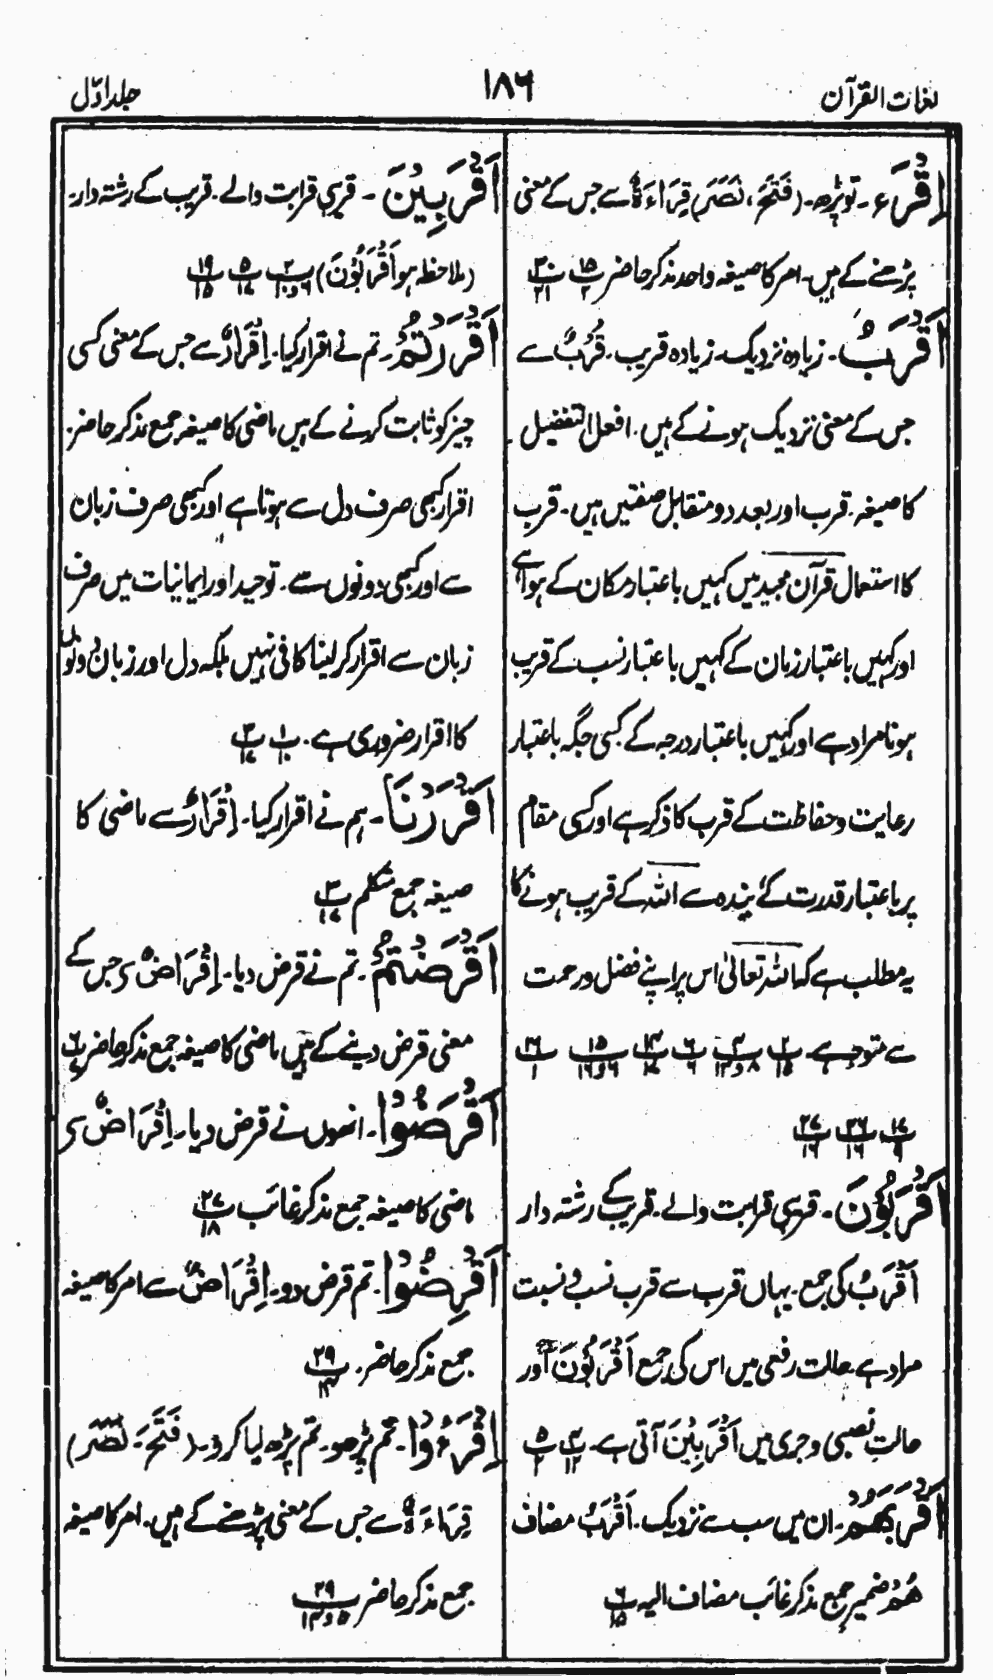 لغات القرآن
۱۸۶
جلد اوّل
اِقْرَء۔ تو پڑھ۔ (فَتَحَ، نَصَرَ) قِرَاءَۃٌ سے جس کے معنی
پڑھنے کے ہیں۔ امر کا صیغہ واحد مذکر حاضر پ ۱۵/۲ پ ۳۰/۲۱
اَقْرَبُ۔ زیادہ نزدیک۔ زیادہ قریب۔ قُرْبٌ سے
جس کے معنی نزدیک ہونے کے ہیں۔ افعل التفضیل
کا صیغہ۔ قرب اور بعد دو متقابل صفتیں ہیں۔ قرب
کا استعمال قرآن مجید میں کہیں باعتبار مکان کے ہوا ہے
اور کہیں باعتبار زمان کے کہیں باعتبار نسب کے قریب
ہونا مراد ہے اور کہیں باعتبار درجہ کے کسی جگہ باعتبار
رعایت و حفاظت کے قرب کا ذکر ہے اور کسی مقام
پر باعتبار قدرت کے بندہ سے اللہ کے قریب ہونے کا
یہ مطلب ہے کہ اللہ تعالیٰ اس پر اپنے فضل و رحمت
سے متوجہ ہے۔ پ ۲/۱۵ پ ۴/۸ و ۱۳ پ ۶/۶ پ ۱۴/۱۷ پ ۱۵/۶ و ۱۶ پ ۲۶/۱
پ ۱۷/۹ پ ۲۶/۱۶ پ ۲۷/۱۶
اَقْرَبُوْنَ۔ قریبی قرابت والے۔ قریب کے رشتہ دار
اَقْرَبُ کی جمع۔ یہاں قرب سے قرب نسب و نسبت
مراد ہے۔ حالت رفعی میں اس کی جمع اَقْرَبُوْنَ اور
حالتِ نصبی و جری میں اَقْرَبِیْنَ آتی ہے۔ پ ۴/۱۲ پ ۵/۲
اَقْرَبُھُمْ۔ ان میں سب سے نزدیک۔ اَقْرَبُ مضاف
ھُمْ ضمیر جمع مذکر غائب مضاف الیہ پ ۶/۱۵
اَقْرَبِیْنَ۔ قریبی قرابت والے۔ قریب کے رشتہ دار۔
(ملاحظہ ہو اَقْرَبُوْنَ) پ ۲/۶ و ۱۰ پ ۵/۱۷ پ ۱۹/۱۵
اَقْرَرْتُمْ۔ تم نے اقرار کیا۔ اِقْرَارٌ سے جس کے معنی کسی
چیز کو ثابت کرنے کے ہیں ماضی کا صیغہ جمع مذکر حاضر۔
اقرار کبھی صرف دل سے ہوتا ہے اور کبھی صرف زبان
سے اور کبھی دونوں سے۔ توحید اور ایمانیات میں صرف
زبان سے اقرار کر لینا کافی نہیں بلکہ دل اور زبان دونوں
کا اقرار ضروری ہے۔ پ ۱/۱۰ پ ۳/۱۷
اَقْرَرْنَا۔ ہم نے اقرار کیا۔ اِقْرَارٌ سے ماضی کا
صیغہ جمع متکلم پ ۳/۱۷
اَقْرَضْتُمْ۔ تم نے قرض دیا۔ اِقْرَاضٌ سے جس کے
معنی قرض دینے کے ہیں ماضی کا صیغہ جمع مذکر حاضر پ ۶/۷
اَقْرَضُوْا۔ انہوں نے قرض دیا۔ اِقْرَاضٌ سے
ماضی کا صیغہ جمع مذکر غائب پ ۲۷/۱۸
اَقْرِضُوْا۔ تم قرض دو۔ اِقْرَاضٌ سے امر کا صیغہ
جمع مذکر حاضر۔ پ ۲۹/۱۴
اِقْرَءُوْا۔ تم پڑھو۔ تم پڑھ لیا کرو۔ (فَتَحَ۔ نَصَرَ)
قِرَاءَۃٌ سے جس کے معنی پڑھنے کے ہیں۔ امر کا صیغہ
جمع مذکر حاضر پ ۲۹/۵ و ۱۴